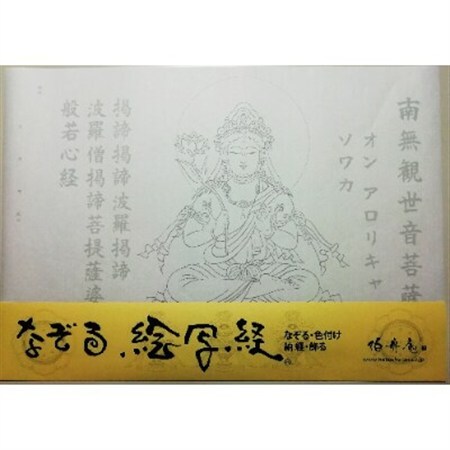 南無観世音菩薩
オン アロリキャ
ソワカ
掲諦掲諦波羅掲諦
波羅僧掲諦菩提薩婆
般若心経
なぞる 絵写経
なぞる・色付け
納経・飾る